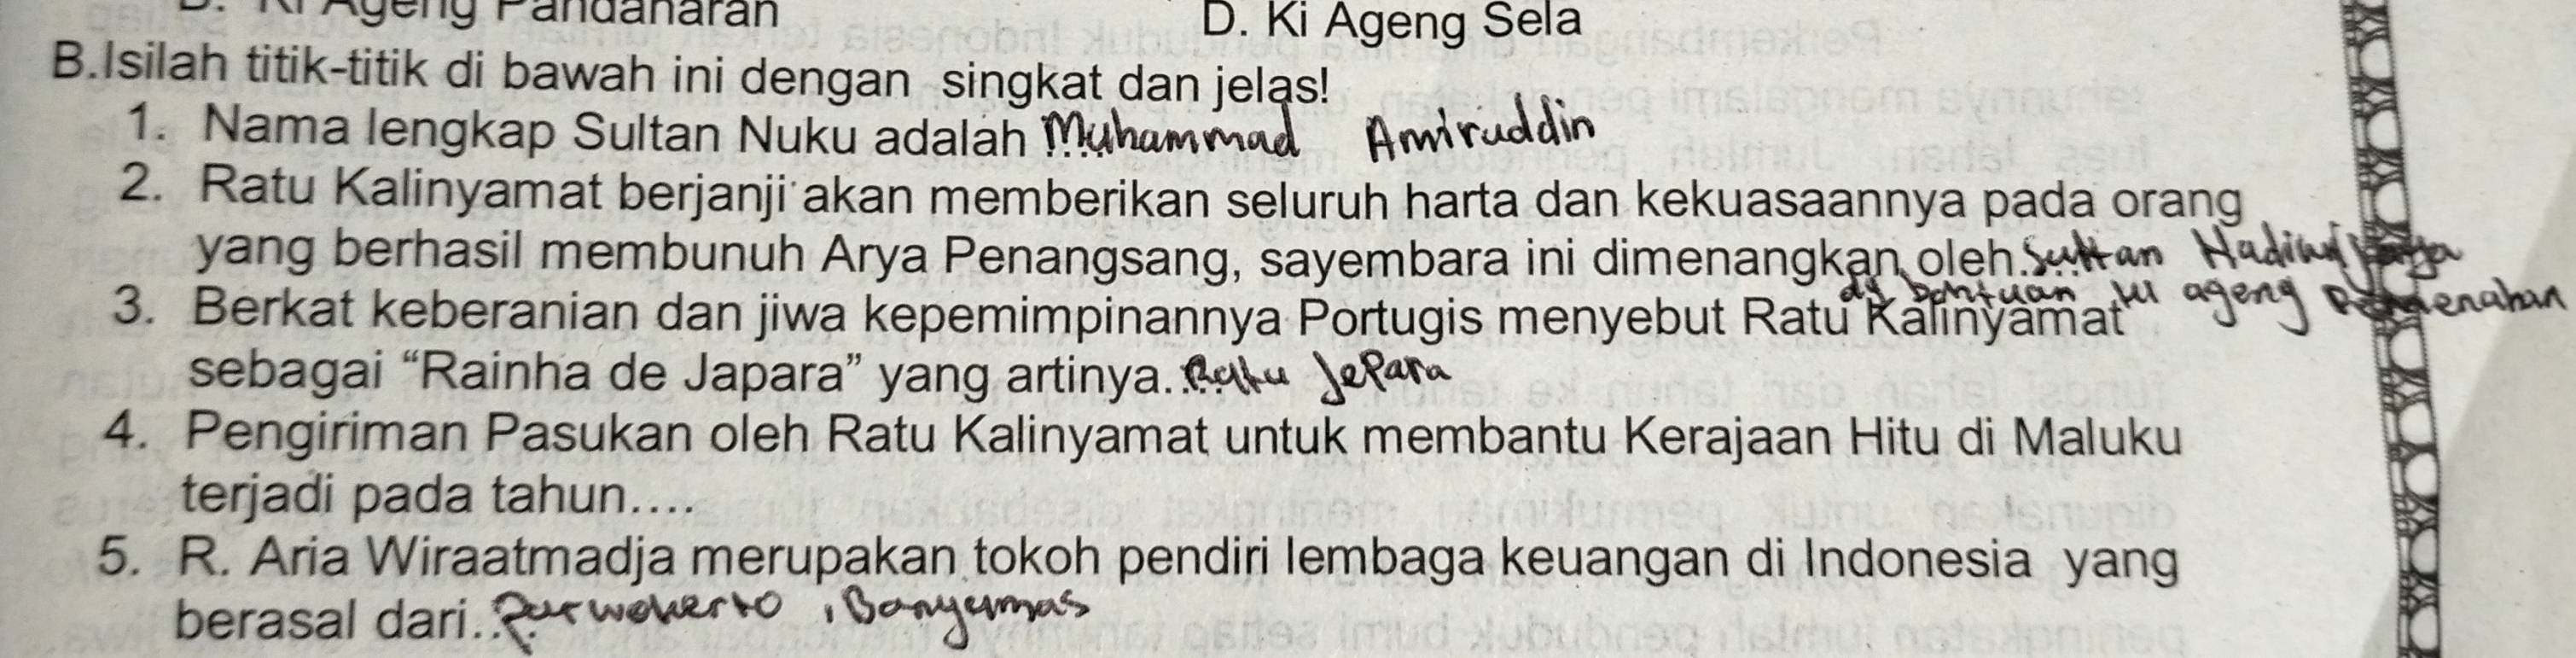 B. Ki Ageng Pandanaran D. Ki Ageng Sela
B.Isilah titik-titik di bawah ini dengan singkat dan jelas!
1. Nama lengkap Sultan Nuku adalah Muhammad Amiruddin
2. Ratu Kalinyamat berjanji akan memberikan seluruh harta dan kekuasaannya pada orang
yang berhasil membunuh Arya Penangsang, sayembara ini dimenangkan oleh... Sultan Hadiwijaya
dg bantuan ki ageng Pemenahan
3. Berkat keberanian dan jiwa kepemimpinannya Portugis menyebut Ratu Kalinyamat
sebagai “Rainha de Japara” yang artinya.... Ratu Jepara
4. Pengiriman Pasukan oleh Ratu Kalinyamat untuk membantu Kerajaan Hitu di Maluku
terjadi pada tahun....
5. R. Aria Wiraatmadja merupakan tokoh pendiri lembaga keuangan di Indonesia yang
berasal dari... Purwokerto, Banyumas